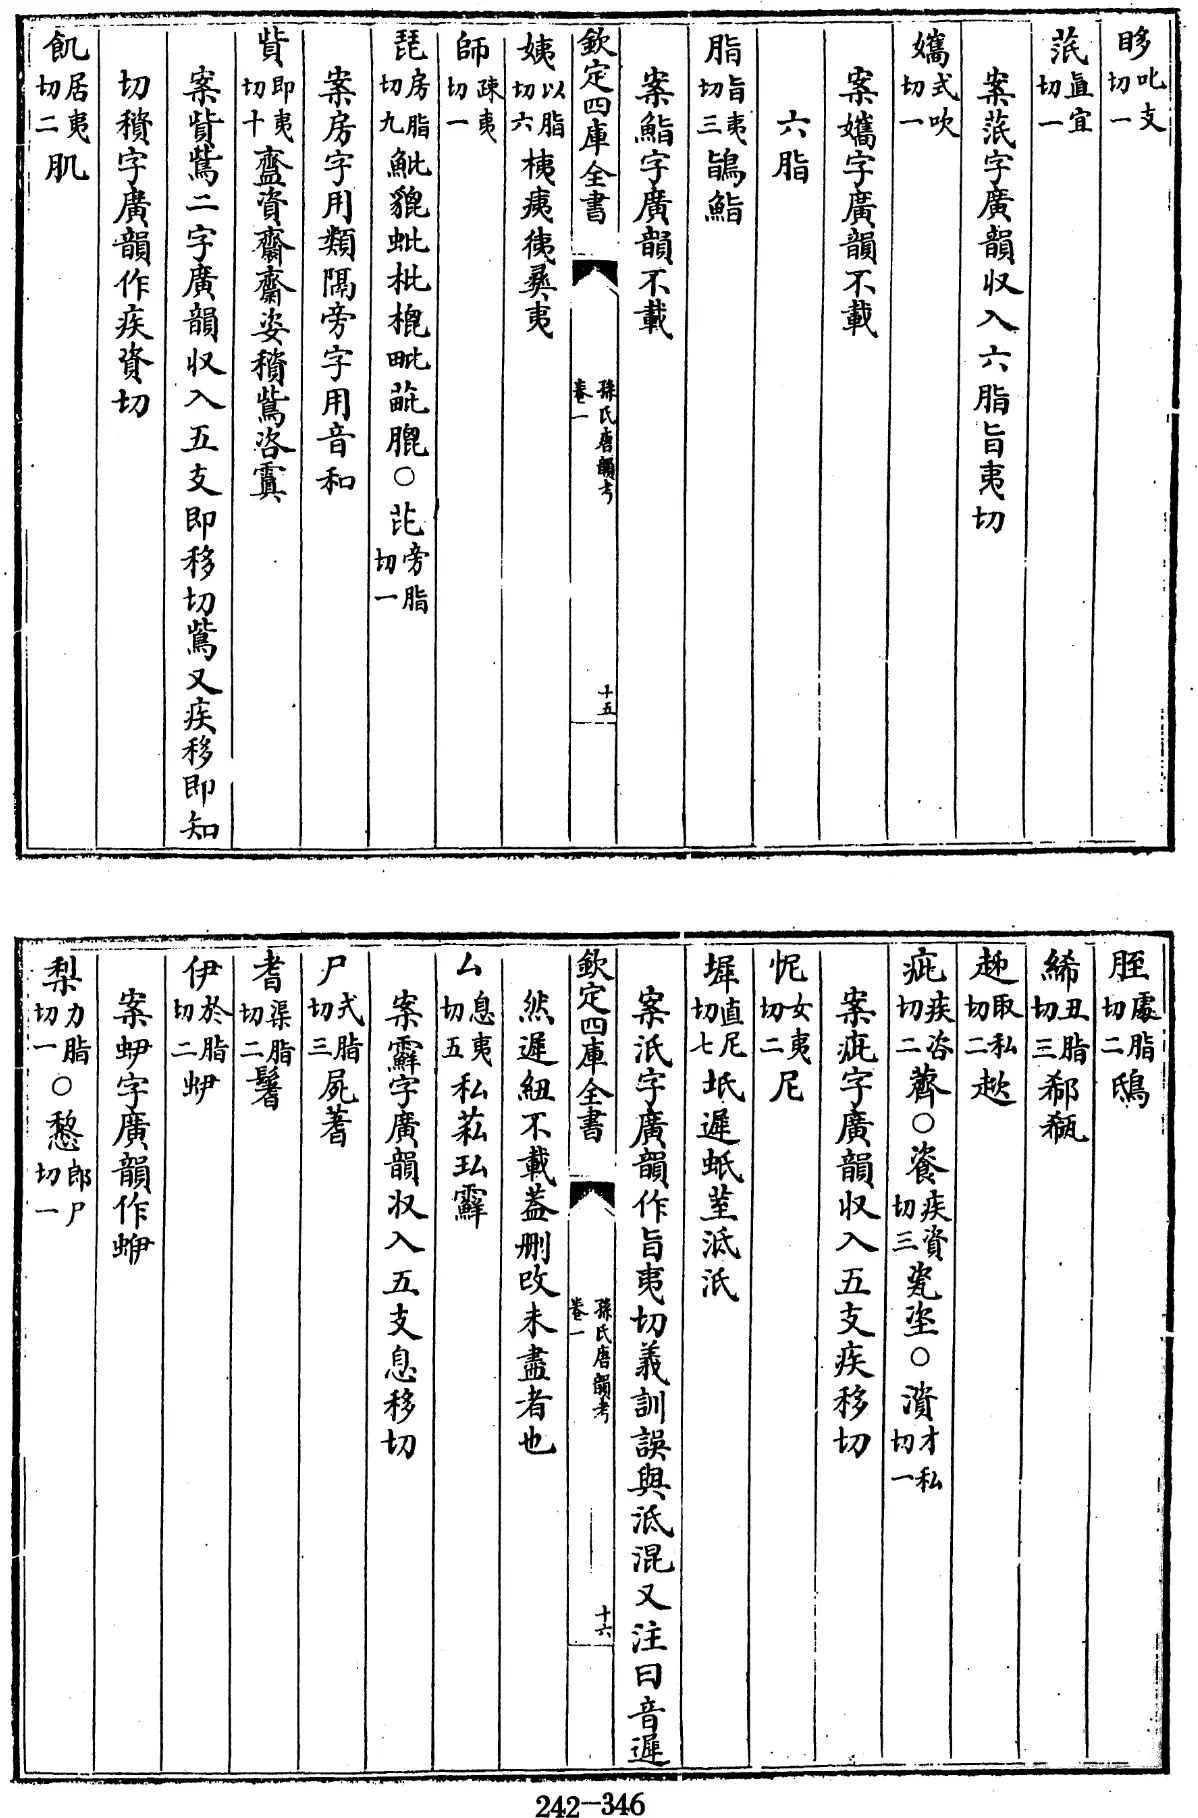 眵叱支切一
茋眞宜切一
案茋字廣韻収入六脂旨夷切
孈式吹切一
案孈字廣韻不載
六脂
脂旨夷切三鴲鮨
案鮨字廣韻不載
欽定四庫全書 孫氏唐韻考 卷一 十五
姨以脂切六桋痍徺彞夷
師疎夷切一
琵房脂切九魮貔蚍枇㮰毗蓖膍○芘旁脂切一
案房字用類隔旁字用音和
貲即夷切十齍資齋齌姿穧鴜咨𩆂
案貲鴜二字廣韻収入五支即移切鴜又疾移即知
切穧字廣韻作疾資切
飢居夷切二肌
胵處脂切二鴟
絺丑脂切三郗瓻
趑取私切二趀
疵疾咨切二薺○餈疾資切三瓷垐○澬才私切一
案疵字廣韻収入五支疾移切
怩女夷切二尼
墀直尼切七坻遲蚳荎泜汦
案汦字廣韻作旨夷切義訓誤與泜混又注曰音遲
欽定四庫全書 孫氏唐韻考 卷一 十六
然遲紐不載葢刪改未盡者也
厶息夷切五私菘玜霹
案霹字廣韻収入五支息移切
尸式脂切三屍蓍
耆渠脂切二鬐
伊於脂切二蛜
案蛜字廣韻作蛜
梨力脂切一○嫠郎尸切一
242-346